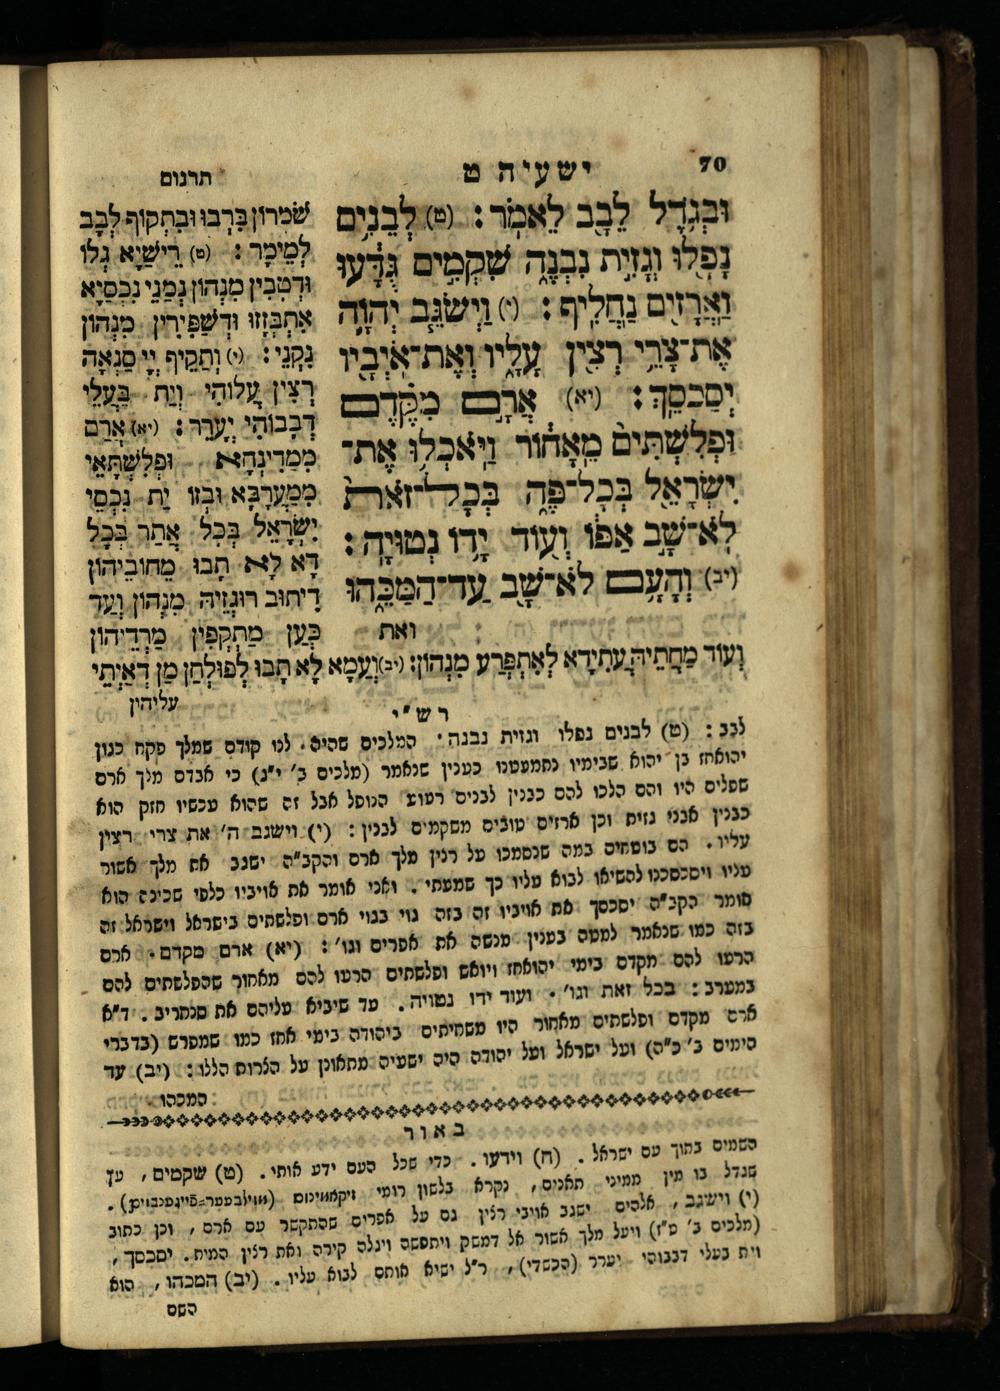 70
ישעיה ט
תרגום
וּבְגֹ֥דֶל לֵבָ֖ב לֵאמֹֽר : (ט) לְבֵנִ֥ים
נָפָ֖לוּ וְגָזִ֣ית נִבְנֶ֑ה שִׁקְמִ֣ים גֻּדָּ֔עוּ
וַאֲרָזִ֖ים נַחֲלִֽיף : (י) וַיְשַׂגֵּ֧ב יְהוָ֛ה
אֶת־צָרֵ֥י רְצִ֖ין עָלָ֑יו וְאֶת־אֹיְבָ֖יו
יְסַכְסֵֽךְ : (יא) אֲרָ֣ם מִקֶּ֗דֶם
וּפְלִשְׁתִּים֙ מֵֽאָח֔וֹר וַיֹּאכְל֥וּ אֶת־
יִשְׂרָאֵ֖ל בְּכָל־פֶּ֑ה בְּכָל־זֹאת֙
לֹא־שָׁ֣ב אַפּ֔וֹ וְע֖וֹד יָד֥וֹ נְטוּיָֽה :
(יב) וְהָעָ֥ם לֹא־שָׁ֖ב עַד־הַמַּכֵּ֑הוּ
ואת
שֹׁמְרוֹן בִּרְבוּ וּבִתְקוֹף לְבָב
לְמֵימָר : (ט) רֵישַׁיָא גְלוֹ
וּדְטָבִין מִנְהוֹן נְמַנֵי נִכְסַיָא
אִתְבְּזָזוּ וּדְשַׁפִּירִין מִנְהוֹן
נִקְנֵי : (י) וְתַקֵיף יְיָ סַנְאָה
רְצִין עֲלוֹהִי וְיַת בַּעֲלֵי
דְבָבוֹהִי יְעָרֵר : (יא) אֲרַם
מִמַדִינְחָא וּפְלִשְׁתָּאֵי
מִמַעַרְבָא וּבְזוֹ יַת נִכְסֵי
יִשְׂרָאֵל בְּכָל אֲתַר בְּכָל
דָא לָא תָבוּ מֵחוֹבֵיהוֹן
דִיתוּב רוּגְזֵיהּ מִנְהוֹן וְעַד
כְּעַן מַתְקְפִין מַרְדֵיהוֹן
וְעוֹד מַחֲתֵיהּ עֲתִידָא לְאִתְפְּרָע מִנְהוֹן : (יב) וְעַמָא לָא תָבוּ לְפוּלְחַן מַן דְאַיְתֵי
עליהון
רש"י
לבב : (ט) לבנים נפלו וגזית נבנה · המלכים שהיו לנו קודם שמלך פקח כגון
יהואחז בן יהוא שבימיו נתמעטנו כענין שנאמר (מלכים ב' י"ג) כי אבדם מלך ארם
שפלים היו והם הלכו להם כבנין לבנים רעוע הנופל אבל זה שהוא עכשיו חזק הוא
כבנין אבני גזית וכן ארזים טובים משקמים לבנין : (י) וישגב ה' את צרי רצין
עליו . הם בוטחים במה שנסמכו על רצין מלך ארם והקב"ה ישגב את מלך אשור
עליו ויסכסכנו להשיאו לבוא עליו כך שמעתי . ואני אומר את אויביו כלפי שכינה הוא
אומר הקב"ה יסכסך את אויביו זה בזה גוי בגוי ארם ופלשתים בישראל וישראל זה
בזה כמו שנאמר למטה בענין מנשה את אפרים וגו' : (יא) ארם מקדם . ארם
הרעו להם מקדם בימי יהואחז ויואש ופלשתים הרעו להם מאחור שהפלשתים להם
במערב : בכל זאת וגו' . ועוד ידו נטויה . עד שיביא עליהם את סנחריב . ד"א
ארם מקדם ופלשתים מאחור היו משחיתים ביהודה בימי אחז כמו שמפרש (בדברי
הימים ב' כ"ח) ועל ישראל ועל יהודה היה ישעיה מתאונן על הצרות הללו : (יב) עד
המכהו .
באור
השמים בתוך עם ישראל . (ח) וידעו . כדי שכל העם ידע אותי . (ט) שקמים , עץ
שגדל בו מין ממיני תאנים , נקרא בלשון רומי
(י) וישגב , אלהים ישגב אויבי רצין גם על אפרים שהתקשר עם ארם , וכן כתוב
(מלכים ב' ט"ז) ויעל מלך אשור אל דמשק ויתפשה ויגלה קירה ואת רצין המית . יסכסך ,
וית בעלי דבבוהי יערר (הכשדי) , ר"ל ישיא אותם לבוא עליו . (יב) המכהו , הוא
השם